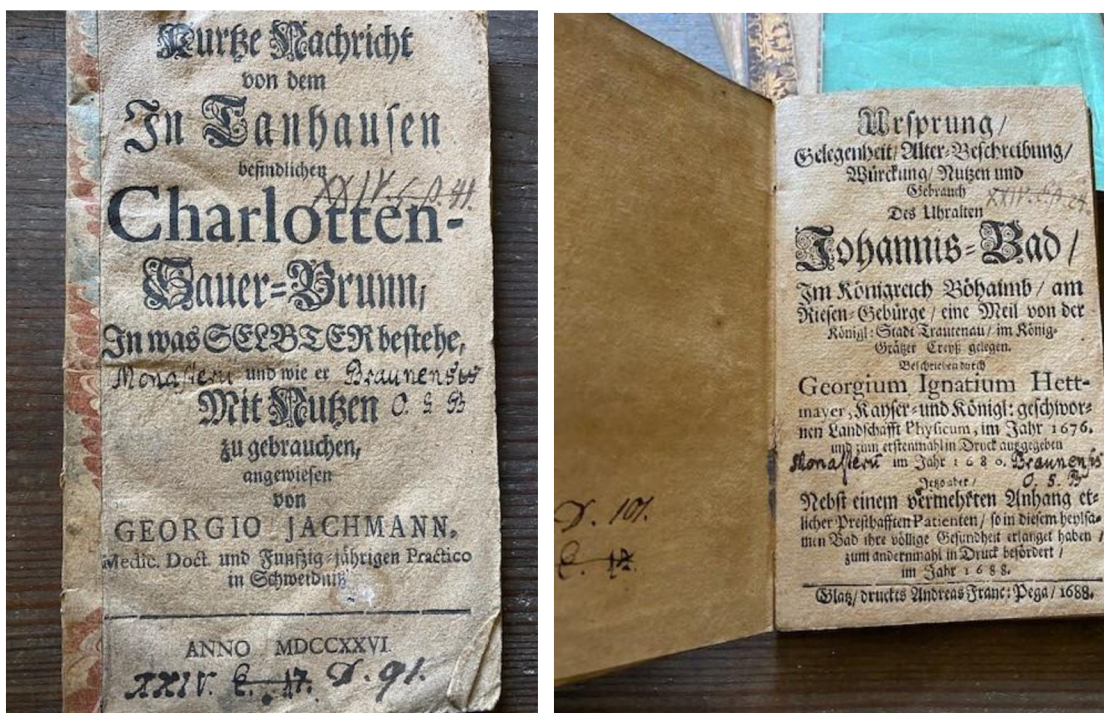 Kurtze Nachricht
von dem
In Tanhausen
befindlichen
XXIV.
Charlotten-
Sauer-Brunn,
In was SELBTER bestehe,
Monasterii und wie er Braunensis
Mit Nutzen O. S. B
zu gebrauchen,
angewiesen
von
GEORGIO JACHMANN,
Medic. Doct. und Funfzig-jährigen Practico
in Schweidnitz
ANNO MDCCXXVI.
XXIV. D. 91.
Ursprung/
Gelegenheit/ Alter-Beschreibung/
Würckung/ Nutzen und
Gebrauch
XXIV.
Des Uhralten
Johannis-Bad/
Im Königreich Böhaimb/ am
Riesen-Gebürge/ eine Meil von der
Königl: Stadt Trautenau/ im König-
Grätzer Creyß gelegen.
Beschrieben durch
Georgium Ignatium Hett-
mayer, Kayser- und Königl: geschwor-
nen Landschafft Physicum, im Jahr 1676.
und zum erstenmahl in Druck außgegeben
Monasterii im Jahr 1680. Braunensis
Jetzo aber/ O. S. B
Nebst einem vermehrten Anhang et-
licher Presthafften Patienten/ so in diesem heylsa-
men Bad ihre völlige Gesundheit erlanget haben/
zum andernmahl in Druck befördert/
im Jahr 1688.
Glatz/ druckts Andreas Franc: Pega/ 1688.
D. 101.